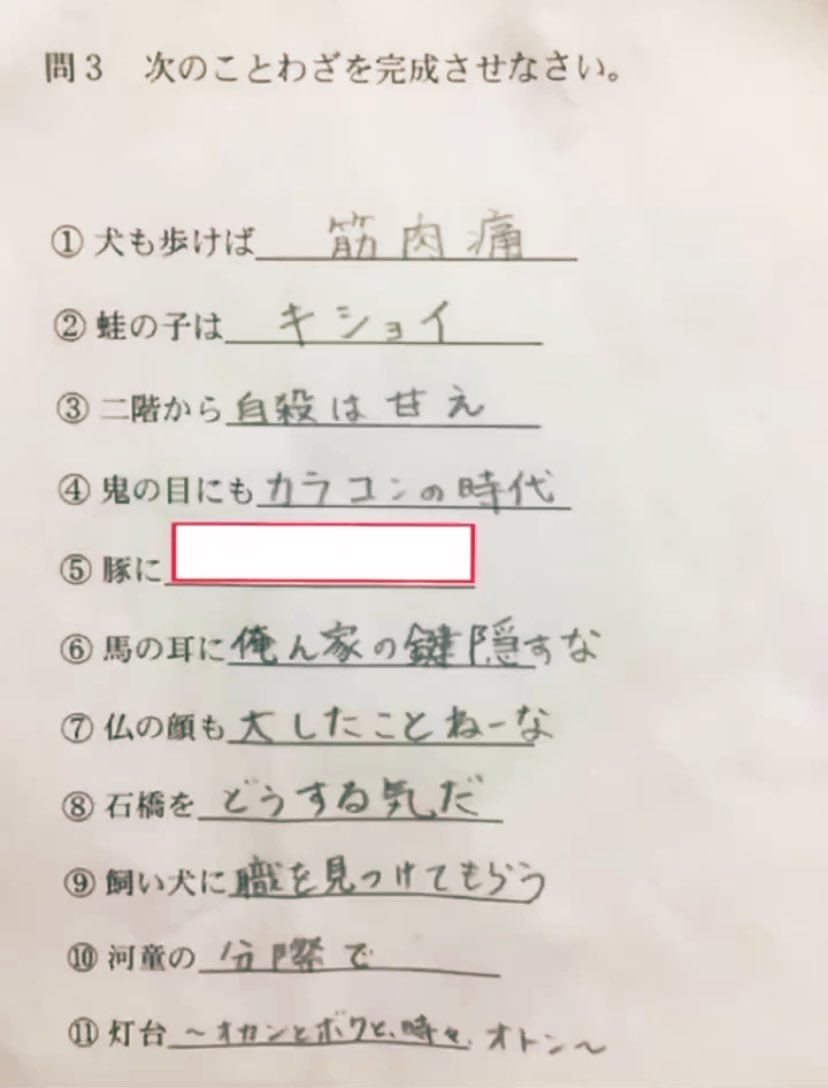 問3 次のことわざを完成させなさい。
①犬も歩けば筋肉痛
②蛙の子はキショイ
③二階から自殺は甘え
④鬼の目にもカラコンの時代
⑤豚に
⑥馬の耳に俺ん家の鍵隠すな
⑦仏の顔も大したことねーな
⑧石橋をどうする気だ
⑨飼い犬に職を見つけてもらう
⑩河童の分際で
⑪灯台〜オカンとボクと、時々、オトン〜